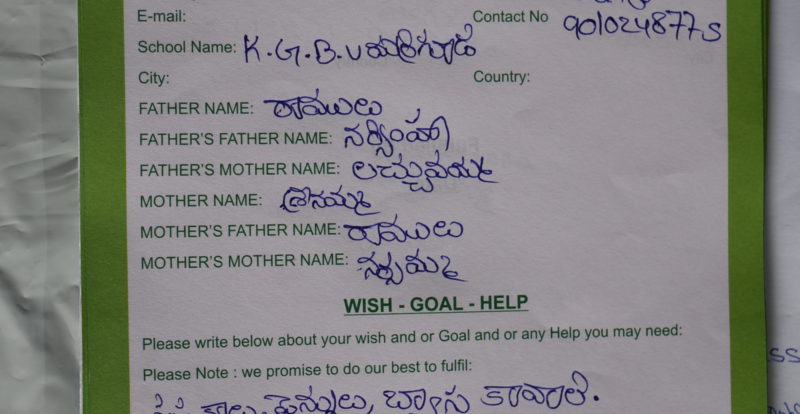 E-mail:
Contact No 9010248775
School Name: K.G.B.V
City:
Country:
FATHER NAME: రాములు
FATHER'S FATHER NAME: నర్సింహ
FATHER'S MOTHER NAME: లచ్చువమ్మ
MOTHER NAME:
MOTHER'S FATHER NAME: రాములు
MOTHER'S MOTHER NAME: నర్సమ్మ
WISH - GOAL - HELP
Please write below about your wish and or Goal and or any Help you may need:
Please Note : we promise to do our best to fulfil:
పెన్నులు, బ్యాగ కావాలి.